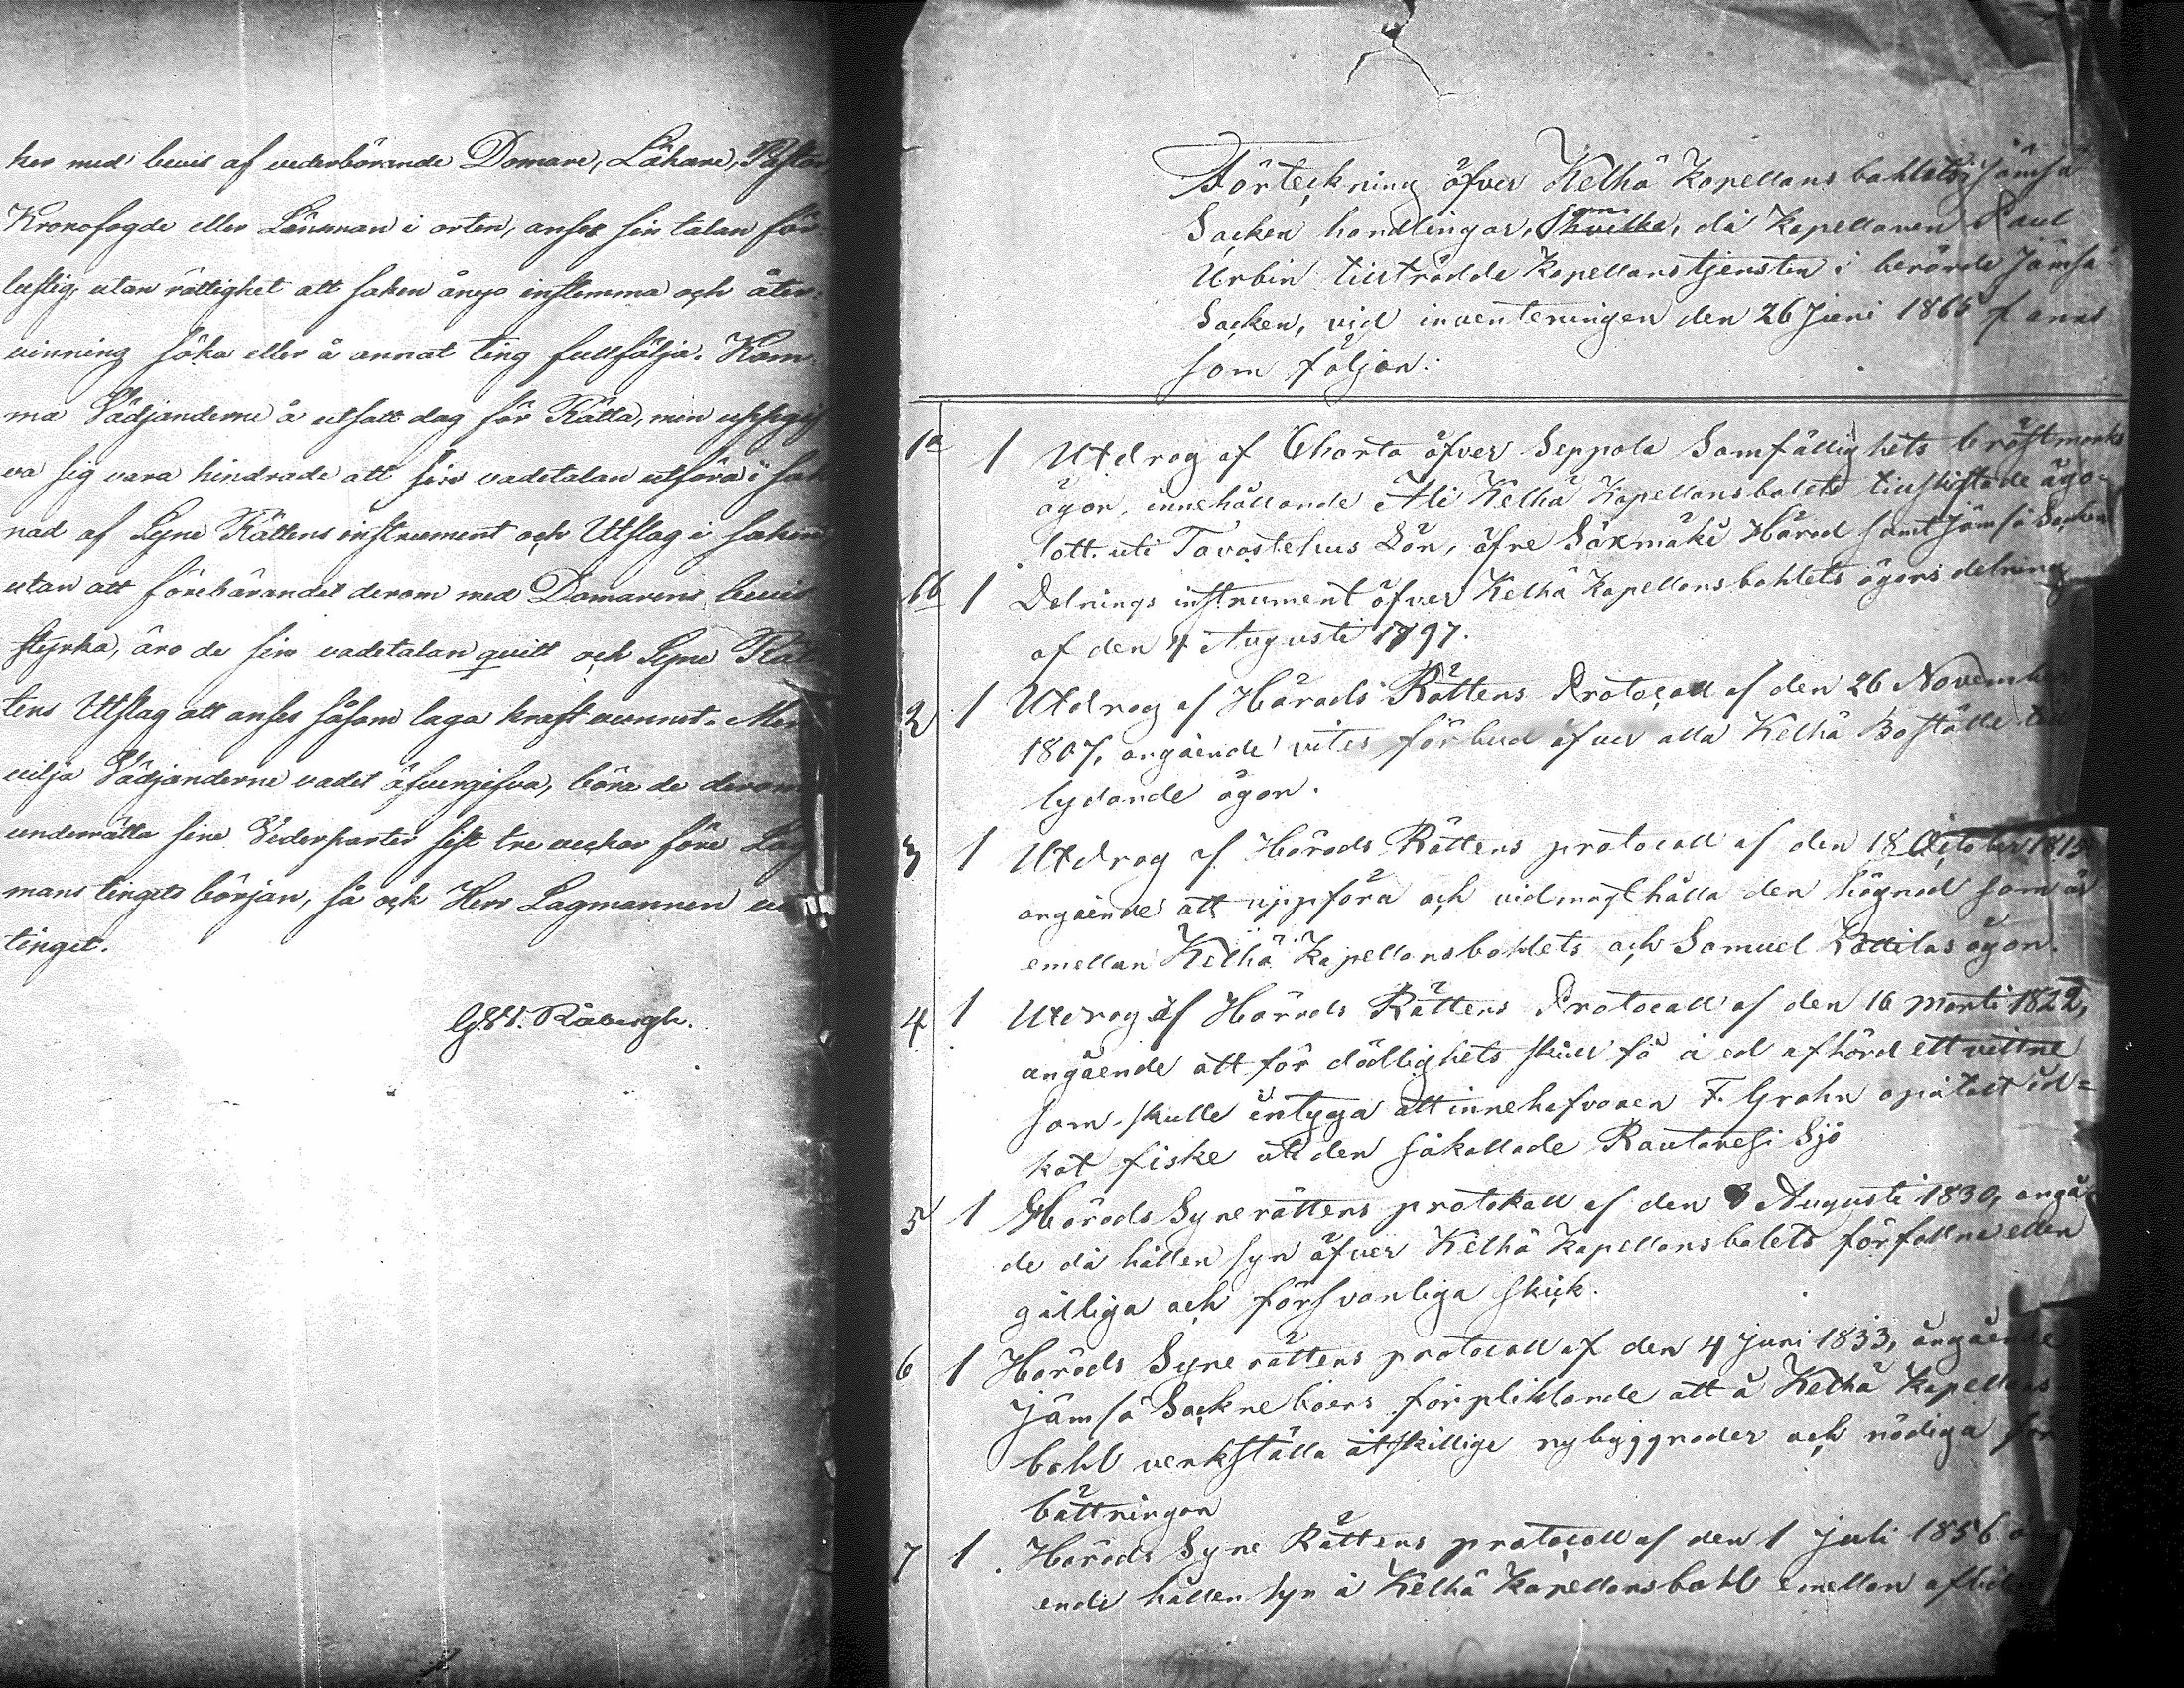 ker med bevis af vederbörande Domare, Läkare, Pastor,
Kronofogde eller Länsman i orten, anses sin talan för
lustig utan rättighet att saken ånyo instemma och åter-
vinning söka eller å annat ting fullfölja. Kom-
ma Vädjanderne å utsatt dag för Rätta, men uppgif
va sig vara hindrade att sin vadetalan utföra i sak
nad af Syne Rättens instrument och Utslag i saken
utan att förebärandet derom med Domarens bevis
styrka, äro de sin vadetalan qvitt och Syne Rät-
tens Utslag att anses såsom laga kraft vunnet. Men
vilja Vädjanderne vadet öfvergifva, böra de derom
underrätta sine Vederparter sist tre veckor före Lag
mans tingets början, så ock Herr Lagmannen
tinget.
Råbergh.
Förteckning öfver Kelhä Kapellans bohlets i Jämsä
Socken handlingar, som hvilka, då Kapellanen Paul
Urbin tillträdde Kapellanstjensten i berörde Jämsä
Socken, vid inventeringen den 26 Juni 1865 f anns
som följer:
1a 1 Utdrag af Charta öfver Seppola Samfällighets bröstmarks
ägor, innehållande Ali Kelhä Kapellansbolets tillskiftade ägo-
lott uti Tavastehus Län, öfre Säxmäki Härad samt Jämsä Socken
1b 1 Delnings instrument öfver Kelhä Kapellansbohlets ägors delning
af den 4 Augusti 1797.
2 1 Utdrag af Härads Rättens Protocoll af den 26 November
1807, angående vites förbud öfver alla Kelhä Boställe till
lydande ägor.
3 1 Utdrag af Härads Rättens protocoll af den 18 October 1815
angående att uppföra och vidmagthålla den hägnad som är
emellan Kelhä Kapellansbohlets och Samuel Kottilas ägor.
4 1 Utdrag af Härads Rättens Protocoll af den 16 Marti 1822,
angående att för dödlighets skull få å ed afhörd ett vittne
som skulle intyga att innehafvaren F. Grahn opåtalt id=
kat fiske uti den såkallade Rautavesi Sjö
5 1 Härads Synerättens protokoll af den Augusti 1830, angå-
de då hållen syn öfver Kelhä Kapellansbolets förfallna eller
gilliga och försvarliga skick.
6 1 Härads Synerättens protocoll af den 4 Juni 1833, angående
Jämsä Sockneboers förpliktande att å Kelhä Kapellans
bohl verkställa åtskillige nybyggnader och nödiga för
bättringar
7 1 Härads Syne Rättens protocoll af den 1 Juli 1856 å
ende hållen syn å Kelhä Kapellansbohl emellan